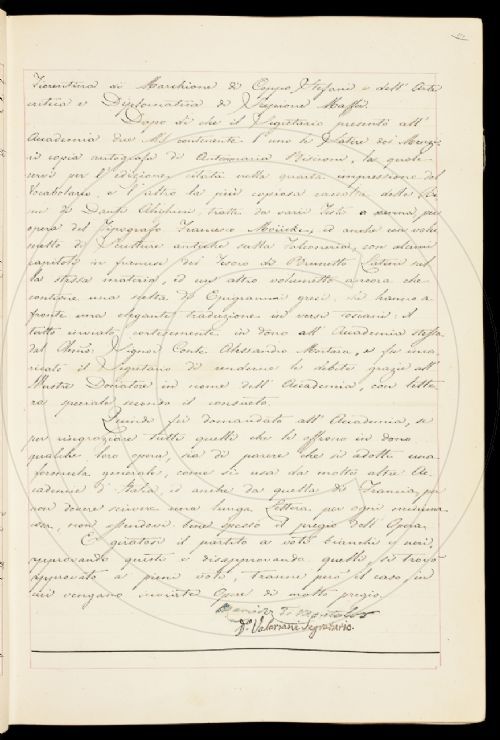 Fiorentina di Marchionne di Coppo Stefani e dell'Arte
critica e Diplomatica di Scipione Maffei.
Dopo di che il Segretario presentò all'
Accademia due MS. contenente l'uno le Satire del Menzi-
ni copia autografa di Antonmaria Biscioni, la quale
servì per l'edizione citata nella quarta impressione del
Vocabolario, e l'altro la più copiosa raccolta delle Ri-
me di Dante Alighieri, tratte da varj Testi a penna, per
opera del Tipografo Francesco ed anche un volu-
metto di Scritture antiche sulla Falconeria, con alcuni
capitoli in francese del Tesoro di Brunetto Latini sul
la stessa materia, ed un altro volumetto ancora che
contiene una scelta di Epigrammi greci, che hanno a
fronte una elegante traduzione in versi toscani: il
tutto inviato cortesemente in dono all'Accademia stessa
dal Chmo. Signor Conte Alessandro Mortara, e fu inca-
ricato il Segretario di renderne le debite grazie all'
Illustre Donatore in nome dell'Accademia, con lette
ra speciale secondo il consueto.
Quindi fu domandato all'Accademia, se
per ringraziare tutti quelli che le offrono in dono
qualche loro opera, sia di parere che si adotti una
formula generale, come si usa da molte altre Ac
cademie d'Italia, ed anche da quelle di Francia, per
non dovere scrivere una lunga Lettera per ogni minima
cosa, non essendovi bene spesso il pregio dell'Opera.
E giratosi il partito a voti bianchi e neri,
approvando questi e disapprovando quelli, si trovò
approvato a pieni voti, tranne però il caso in
cui vengano inviate Opere di molto pregio.
Dr. Valeriani Segretario.